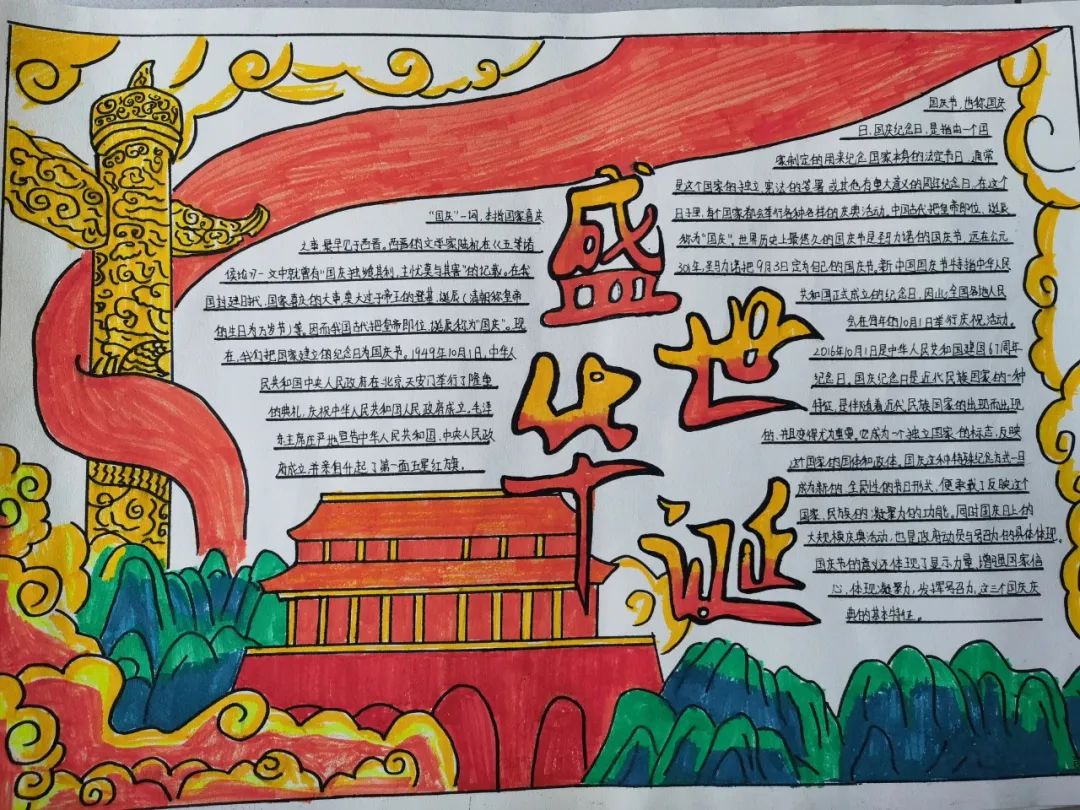 盛世华诞
"国庆"一词,本指国家喜庆
大事,最早见于西晋。西晋的文学家陆机在《五等诸
侯论》一文中就曾有"国庆独飨其利,主忧莫与其害"的记载。在我
国封建时代,国家喜庆的大事莫大过于帝王的登基,诞辰(清朝称皇帝
的生日为万岁节)等。因而我国古代把皇帝即位,诞辰称为"国庆"。现
在,我们把国家建立的纪念日为国庆节。1949年10月1日,中华人
民共和国中央人民政府在北京天安门举行了隆重
的典礼,庆祝中华人民共和国人民政府成立。毛泽
东主席庄严地宣告中华人民共和国,中央人民政
府成立并亲自升起了第一面五星红旗。
国庆节,也称国庆
日,国庆纪念日,是指由一个国
家制定的用来纪念国家本身的法定节日,通常
是这个国家的独立宪法的签署或其他有重大意义的周年纪念日。在这个
日子里,每个国家都会举行各种各样的庆典活动,中国古代把皇帝即位,诞辰
称为"国庆"。世界历史上最悠久的国庆节是圣马力诺的国庆节,远在公元
301年,圣马力诺把9月3日定为自己的国庆节。新中国国庆节特指中华人民
共和国正式成立的纪念日,因此全国各地人民
会在每年的10月1日举行庆祝活动。
2016年10月1日是中华人民共和国建国67周年
纪念日。国庆纪念日是近代民族国家的一种
特征,是伴随着近代民族国家的出现而出现
的,并且变得尤为重要。它成为一个独立国家的标志,反映
这个国家的国体和政体。国庆这种特殊纪念方式一旦
成为新的,全民性的节日形式,便承载了反映这个
国家,民族的凝聚力的功能。同时国庆日上的
大规模庆典活动,也是政府动员与号召力的具体体现。
国庆节的意义还体现了显示力量,增强国家信
心,体现凝聚力,发挥号召力,这三个国庆庆
典的基本特征。